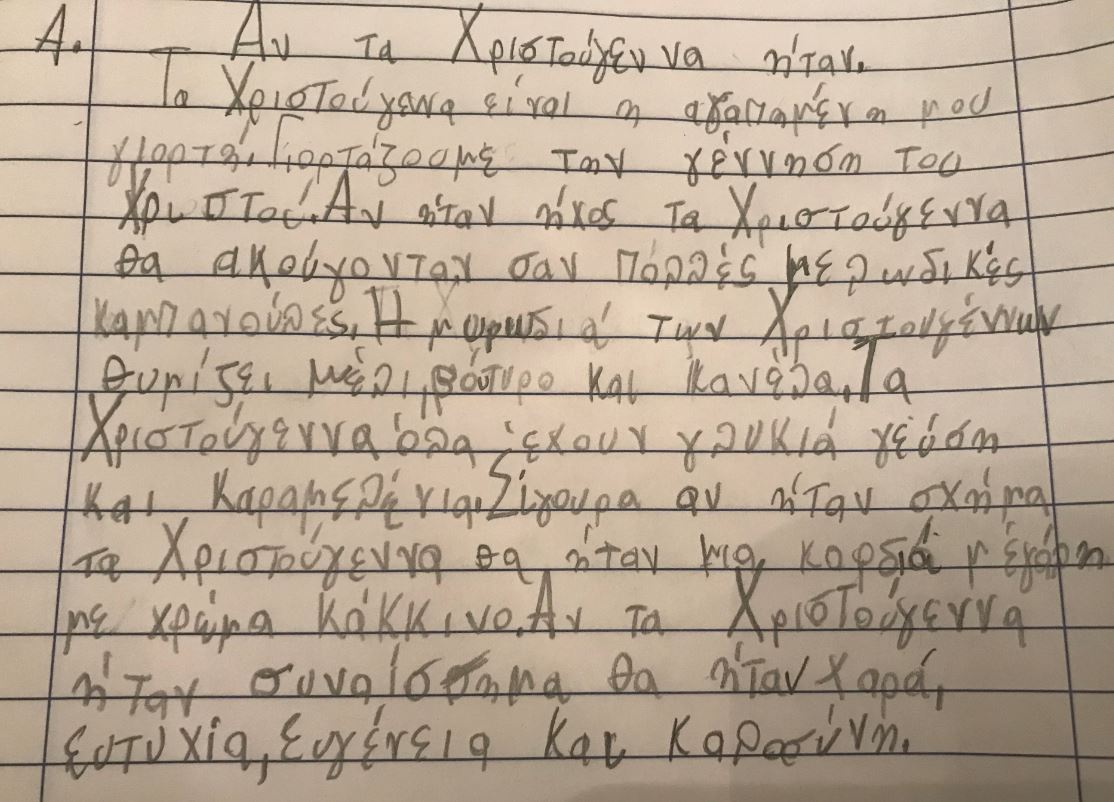 Α. Αν τα Χριστούγεννα ήταν.
Τα Χριστούγεννα είναι η αγαπημένη μου
γιορτή. Γιορτάζουμε την γέννηση του
Χριστού. Αν ήταν ήχος τα Χριστούγεννα
θα ακούγονταν σαν πολλές μελωδικές
καμπανούλες. Η μυρωδιά των Χριστουγέννων
θυμίζει μέλι, βούτυρο και κανέλα. Τα
Χριστούγεννα όλα έχουν γλυκιά γεύση
και καραμελένια. Σίγουρα αν ήταν σχήμα
τα Χριστούγεννα θα ήταν μια καρδιά μεγάλη
με χρώμα κόκκινο. Αν τα Χριστούγεννα
ήταν συναίσθημα θα ήταν χαρά,
ευτυχία, ευγένεια και καλοσύνη.